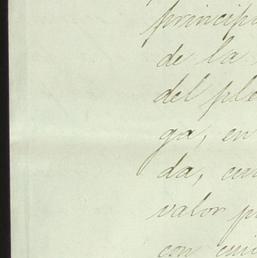 principi
de la
del ple
ga, en
da, cu
valor p
con cui